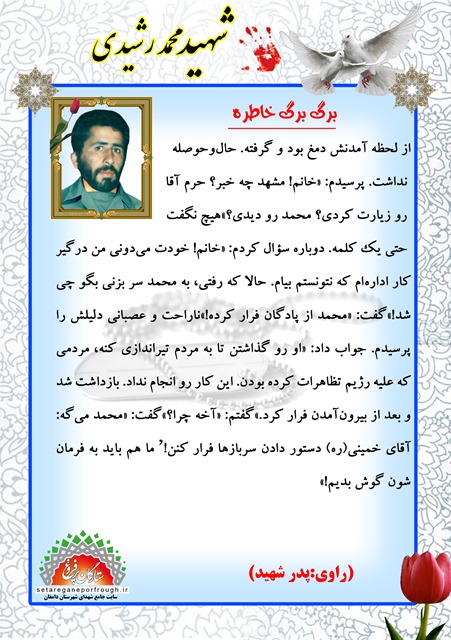 شهید محمد رشیدی
برگ برگ خاطره
از لحظه آمدنش دمغ بود و گرفته. حال‌وحوصله
نداشت. پرسیدم: «خانم! مشهد چه خبر؟ حرم آقا
رو زیارت کردی؟ محمد رو دیدی؟»هیچ نگفت
حتی یك کلمه. دوباره سؤال کردم: «خانم! خودت می‌دونی من درگیر
کار اداره‌ام که نتونستم بیام. حالا که رفتی، به محمد سر بزنی بگو چی
شد!»گفت: «محمد از پادگان فرار کرده!»ناراحت و عصبانی دلیلش را
پرسیدم. جواب داد: «او رو گذاشتن تا به مردم تیراندازی کنه، مردمی
که علیه رژیم تظاهرات کرده بودن. این کار رو انجام نداد. بازداشت شد
و بعد از بیرون‌آمدن فرار کرد.»گفتم: «آخه چرا؟»گفت: «محمد می‌گه:
آقای خمینی(ره) دستور دادن سربازها فرار کنن!ʾ ما هم باید به فرمان
شون گوش بدیم!»
(راوی:پدر شهید)
ستارگان پرفروغ
setareganeporfrough.ir
سایت جامع شهدای شهرستان دامغان